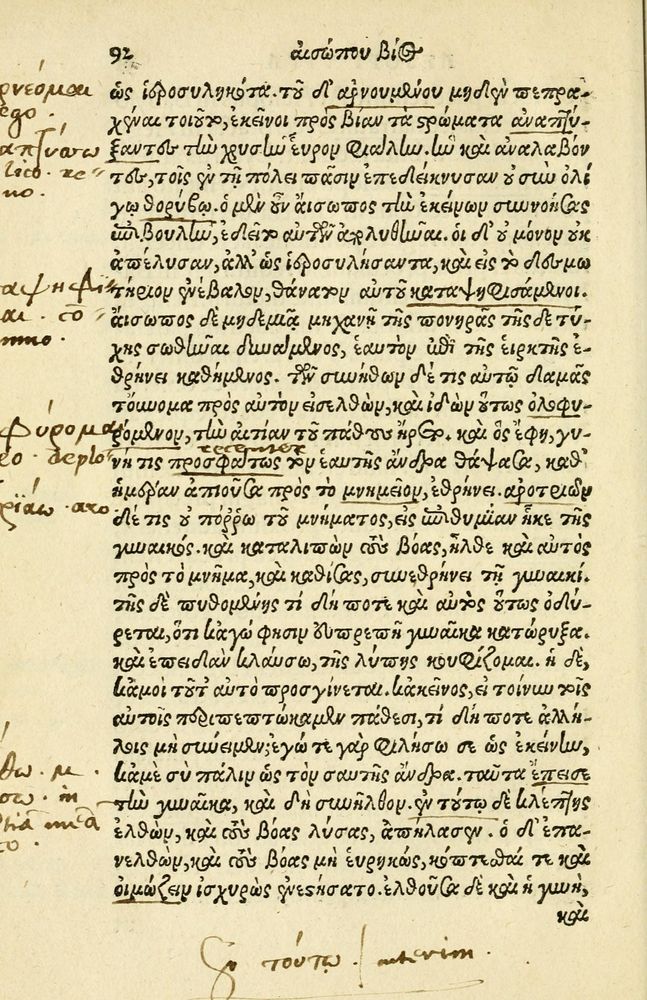 92 αἰσώπου βίος
ὡς ἱεροσυληκότα. τοῦ δ' ἀρνουμένου μηδὲν πεπρα-
χέναι τοιοῦτο, ἐκεῖνοι πρὸς βίαν τὰ στρώματα ἀναπτύ-
ξαντες τὴν χρυσῆν εὗρον φιάλην. ἣν καὶ ἀναλαβόν
τες, τοῖς ἐν τῇ πόλει πᾶσιν ἐπεδείκνυσαν οὐ σὺν ὀλί
γῳ θορύβῳ. ὁ μὲν οὖν αἴσωπος τὴν ἐκείνων συννοήσας
ἐπιβουλὴν, ἐδεῖτο αὐτῶν ἀπολυθῆναι. οἱ δ' οὐ μόνον οὐκ
ἀπέλυσαν, ἀλλ' ὡς ἱεροσυλήσαντα, καὶ εἰς τὸ δεσμω
τήριον ἐνέβαλον, θάνατον αὐτοῦ καταψηφισάμενοι.
αἴσωπος δὲ μηδεμιᾷ μηχανῇ τῆς πονηρᾶς τῆσδε τύ-
χης σωθῆναι δυνάμενος, ἑαυτὸν ἐπὶ τῆς εἱρκτῆς ἐ-
θρήνει καθήμενος. τῶν συνήθων δέ τις αὐτῷ δαμᾶς
τοὔνομα πρὸς αὐτὸν εἰσελθὼν, καὶ ἰδὼν οὕτως ὀλοφυ-
ρόμενον, τὴν αἰτίαν τοῦ πάθους ἤρετο. καὶ ὃς ἔφη, γυ-
νή τις προσφάτως τὸν ἑαυτῆς ἄνδρα θάψασα, καθ'
ἡμέραν ἀπιοῦσα πρὸς τὸ μνημεῖον, ἐθρήνει. ἀροτριῶν
δέ τις οὐ πόῤῥω τοῦ μνήματος, εἰς ἐπιθυμίαν ἧκε τῆς
γυναικός. καὶ καταλιπὼν τοὺς βόας, ἦλθε καὶ αὐτὸς
πρὸς τὸ μνῆμα, καὶ καθίσας, συνεθρήνει τῇ γυναικί.
τῆς δὲ πυθομένης τί δή ποτε καὶ αὐτὸς οὕτως ὀδύ-
ρεται, ὅτι κἀγώ φησιν εὐπρεπῆ γυναῖκα κατώρυξα.
καὶ ἐπειδὰν κλαύσω, τῆς λύπης κουφίζομαι. ἡ δὲ,
κἀμοὶ τοῦτ' αὐτὸ προσγίνεται. κἀκεῖνος, εἰ τοίνυν τοῖς
αὐτοῖς περιπεπτώκαμεν πάθεσι, τί δή ποτε ἀλλή-
λοις μὴ σύνειμεν; ἐγώ τε γὰρ φιλήσω σε ὡς ἐκείνην,
κἀμὲ σὺ πάλιν ὡς τὸν σαυτῆς ἄνδρα. ταῦτα ἔπεισε
τὴν γυναῖκα, καὶ δὴ συνῆλθον. ἐν τούτῳ δὲ κλέπτης
ἐλθὼν, καὶ τοὺς βόας λύσας, ἀπήλασεν. ὁ δ' ἐπα-
νελθὼν, καὶ τοὺς βόας μὴ εὑρηκὼς, κόπτεσθαί τε καὶ
οἰμώζειν ἰσχυρῶς ἐνεστήσατο. ἐλθοῦσα δὲ καὶ ἡ γυνὴ,
καὶ
ἐν τούτῳ interim.